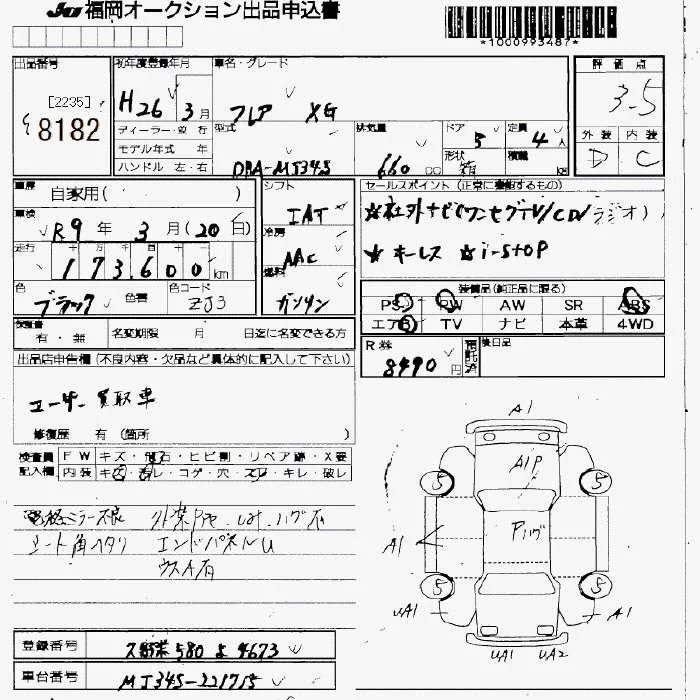 JU福岡オークション出品申込書
*1000993487*
出品番号 初年度登録年月 車名・グレード 評価点
[2235]
8182
H26年 3月 フレア XG 3.5
ディーラー・並行 型式 排気量 ドア 5 定員 4人 外装 内装
モデル年式 年 形状 箱 積載 kg D C
ハンドル 左・右 DBA-MJ34S 660 cc
車歴 自家用( ) シフト IAT セールスポイント(正常に機能するもの)
車検 R9年 3月(20日) 冷房 AAC ☆社外ナビ(ワンセグTV/CD/ラジオ)
走行 十 万 千 百 十 一 ☆キーレス ☆i-stop
173,600km 燃料 ガソリン
色 ブラック 色替 色コード ZJ3 装備品(純正品に限る)
PS PW AW SR ABS
エアB TV ナビ 本革 4WD
保証書 有・無 名変期限 月 日迄に名変できる方
R券 8490円 預託済 後日品
出品店申告欄(不良内容・欠品など具体的に記入して下さい)
ユーザー買取車
修復歴 有(箇所 )
検査員記入欄 FW キズ・飛石・ヒビ割・リペア跡・X要
内装 キズ・汚レ・コゲ・穴・スレ・キレ・破レ
電格ミラー不良
シート角ヘタリ エンドパネルU
ウスA有
A1
A1P
Pハゲ
5 5
A1
5 5
UA1 A1
UA1 UA2
登録番号 580 よ 4673
車台番号 MJ34S-221715